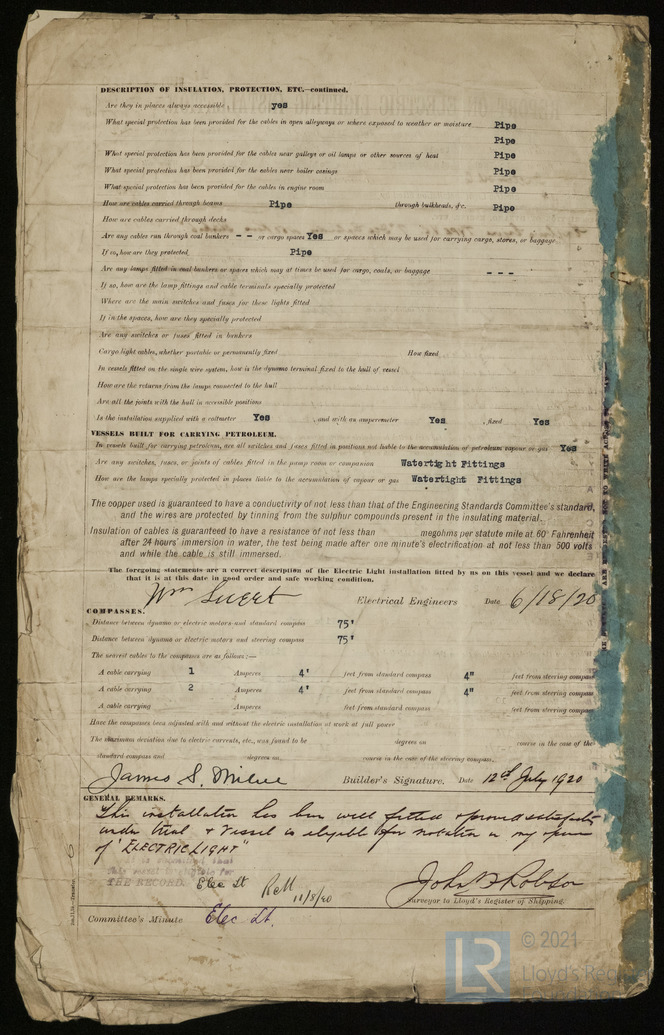 DESCRIPTION OF INSULATION, PROTECTION, ETC.—continued.
Are they in places always accessible, yes
What special protection has been provided for the cables in open alleyways or where exposed to weather or moisture Pipe
Pipe
What special protection has been provided for the cables near galleys or oil lamps or other sources of heat Pipe
What special protection has been provided for the cables near boiler casings Pipe
What special protection has been provided for the cables in engine room Pipe
How are cables carried through beams Pipe through bulkheads, &c. Pipe
How are cables carried through decks
Are any cables run through coal bunkers - - or cargo spaces Yes or spaces which may be used for carrying cargo, stores, or baggage
If so, how are they protected Pipe
Are any lamps fitted in coal bunkers or spaces which may at times be used for cargo, coals, or baggage - - -
If so, how are the lamp fittings and cable terminals specially protected
Where are the main switches and fuses for these lights fitted
If in the spaces, how are they specially protected
Are any switches or fuses fitted in bunkers
Cargo light cables, whether portable or permanently fixed How fixed
In vessels fitted on the single wire system, how is the dynamo terminal fixed to the hull of vessel
How are the returns from the lamps connected to the hull
Are all the joints with the hull in accessible positions
Is the installation supplied with a voltmeter Yes , and with an amperemeter Yes , fixed Yes
VESSELS BUILT FOR CARRYING PETROLEUM.
In vessels built for carrying petroleum, are all switches and fuses fitted in positions not liable to the accumulation of petroleum vapour or gas Yes
Are any switches, fuses, or joints of cables fitted in the pump room or companion Watertight Fittings
How are the lamps specially protected in places liable to the accumulation of vapour or gas Watertight Fittings
The copper used is guaranteed to have a conductivity of not less than that of the Engineering Standards Committee's standard,
and the wires are protected by tinning from the sulphur compounds present in the insulating material.
Insulation of cables is guaranteed to have a resistance of not less than megohms per statute mile at 60° Fahrenheit
after 24 hours' immersion in water, the test being made after one minute's electrification at not less than 500 volts
and while the cable is still immersed.
The foregoing statements are a correct description of the Electric Light installation fitted by us on this vessel and we declare
that it is at this date in good order and safe working condition.
Wm Electrical Engineers Date 6/18/20
COMPASSES.
Distance between dynamo or electric motors and standard compass 75'
Distance between dynamo or electric motors and steering compass 75'
The nearest cables to the compasses are as follows:—
A cable carrying 1 Amperes 4' feet from standard compass 4" feet from steering compass
A cable carrying 2 Amperes 4' feet from standard compass 4" feet from steering compass
A cable carrying Amperes feet from standard compass feet from steering compass
Have the compasses been adjusted with and without the electric installation at work at full power
The maximum deviation due to electric currents, etc., was found to be degrees on course in the case of the
standard compass and degrees on course in the case of the steering compass.
James S. Milne Builder's Signature. Date 12th July 1920
GENERAL REMARKS.
This installation has been well fitted & proved
under trial & Vessel is eligible for notation in my opinion
of "ELECTRIC LIGHT"
It is submitted that
this vessel is eligible for
THE RECORD. Elec Lt 11/8/20
Surveyor to Lloyd's Register of Shipping.
Committee's Minute Elec Lt.
LR
© 2021
Lloyd's Reg